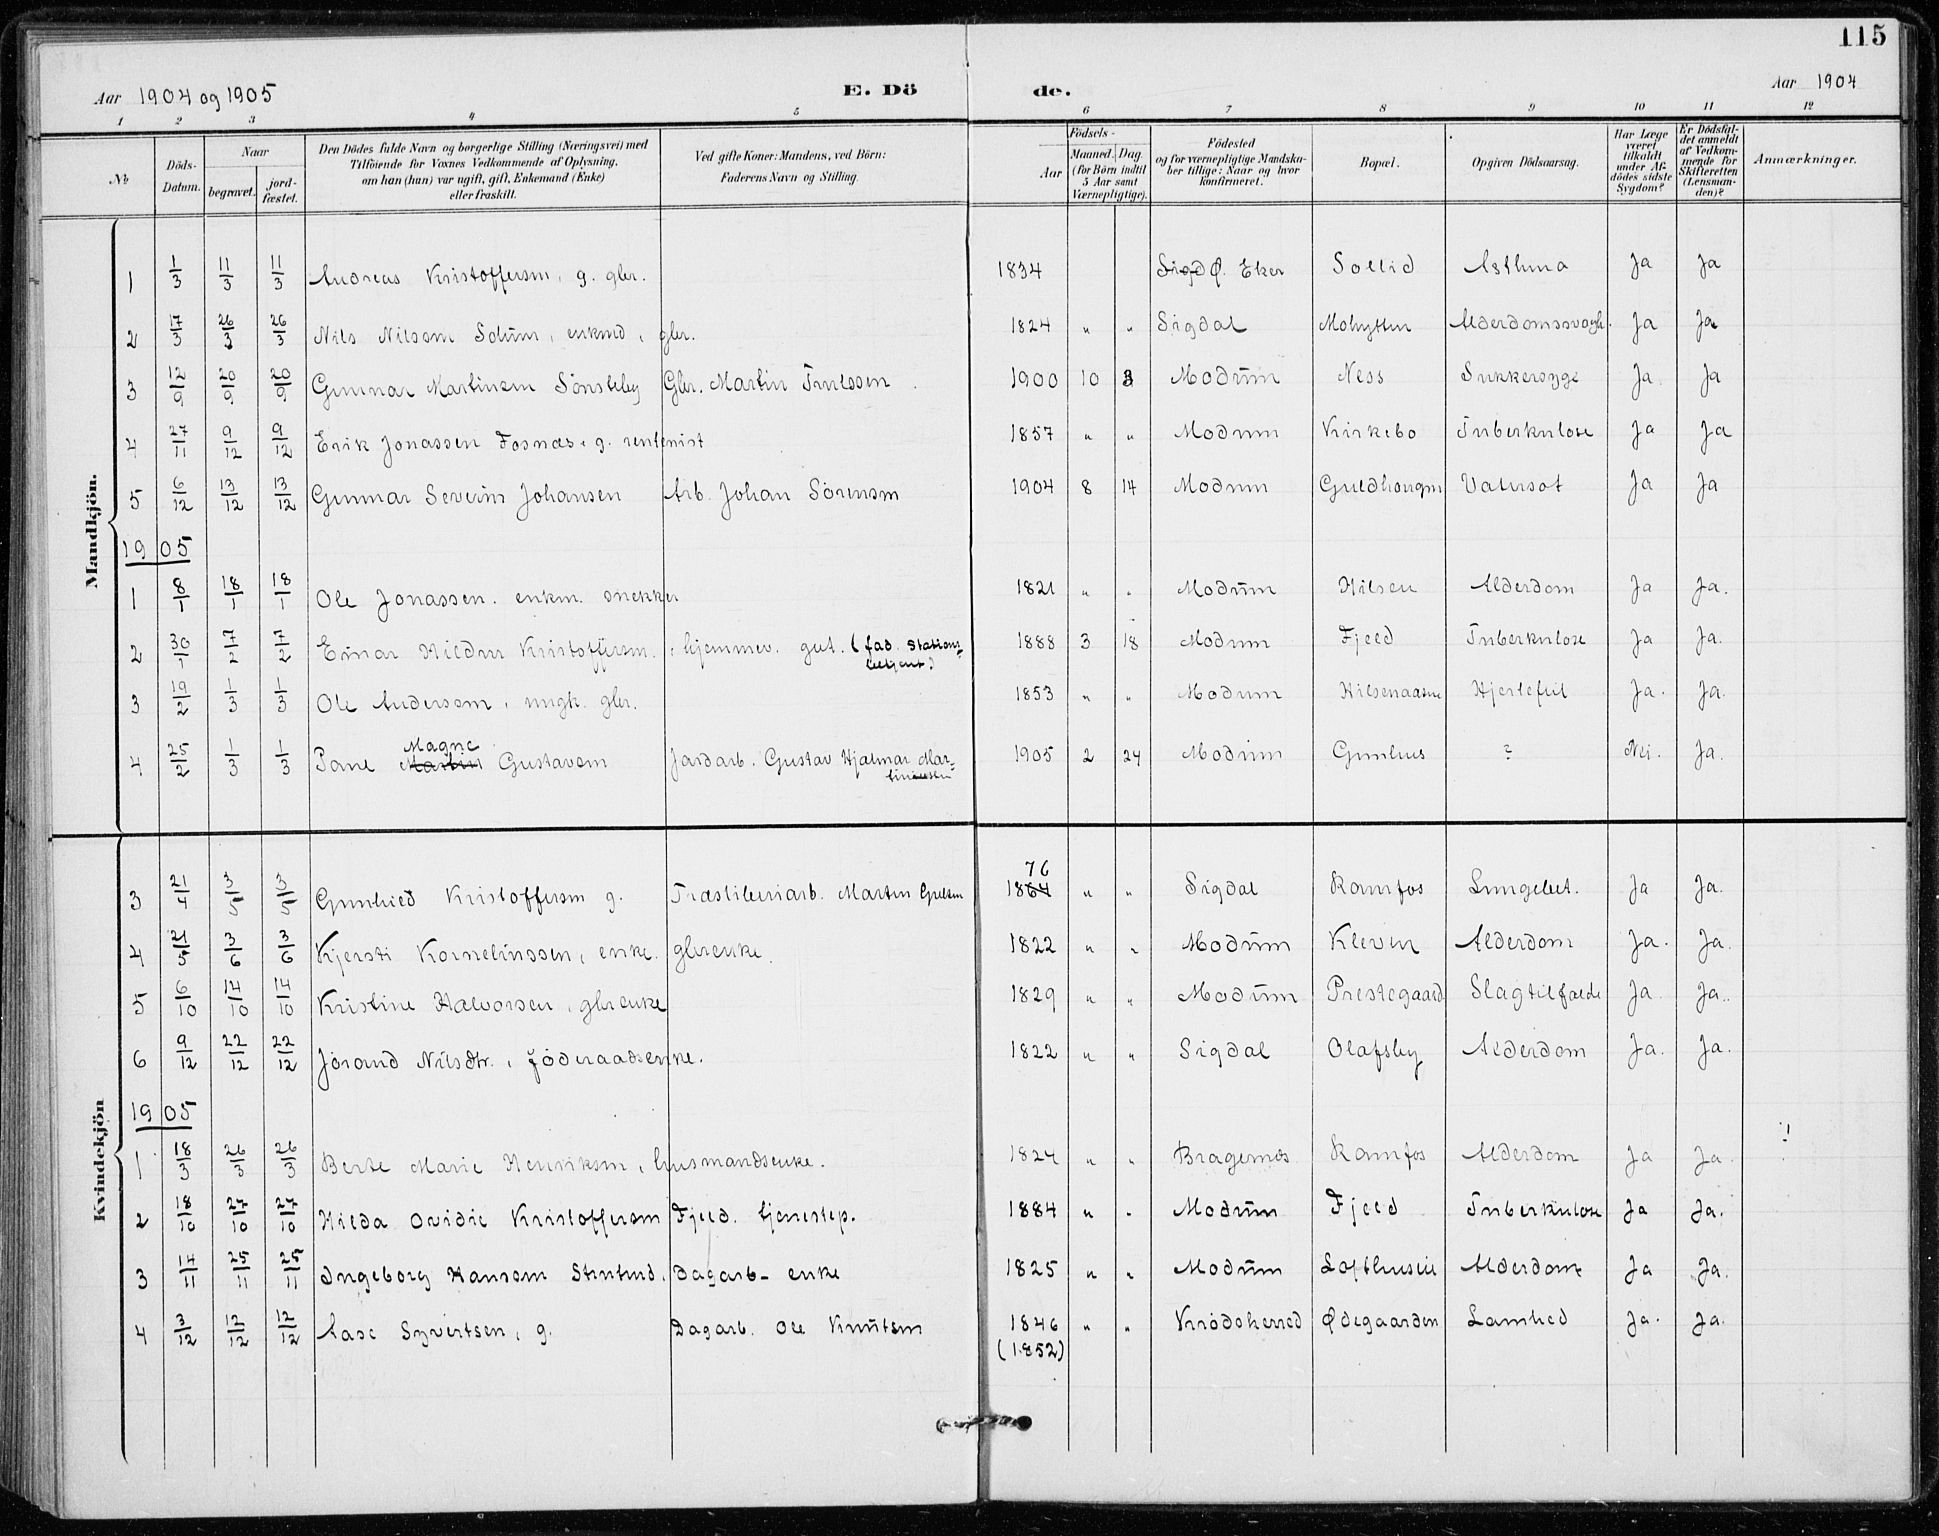 115
Aar 1904 og 1905 E. Dö de. Aar 1904
1 2 3 4 5 6 7 8 9 10 11 12
№ Döds-Datum. Naar begravet. jord-fæstet. Den Dödes fulde Navn og borgerlige Stilling (Næringsvei) med Tilföiende for Voxnes Vedkommende af Oplysning, om han (hun) var ugift, gift, Enkemand (Enke) eller fraskilt. Ved gifte Koner: Mandens, ved Börn: Faderens Navn og Stilling. Födsels- Aar Maaned. Dag (for Börn indtil 5 Aar samt Værnepligtige). Födested og for værnepligtige Mandskaber tillige: Naar og hvor konfirmeret. Bopæl. Opgiven Dödsaarsag. Har Læge været tilkaldt under Afdödes sidste Sygdom? Er Dödsfaldet anmeldt af Vedkommende for Skifteretten (Lensmanden)? Anmærkninger.
Mandkjön.
1 1/3 11/3 11/3 Andreas Kristoffersen, g. gbr. 1834 Sigd Ø. Eker Sollid Asthma Ja Ja
2 17/3 26/3 26/3 Nils Nilsson Solum, enkmd, gbr. 1824 " " Sigdal Mohytten Alderdomssvagh. Ja Ja
3 12/9 20/9 20/9 Gunnar Martinsen Sönsteby Gbr. Martin Trulssen. 1900 10 3 Modum Ness Sukkersyge Ja. Ja
4 27/11 9/12 9/12 Erik Jonassen Fosnæs, g. rentenist 1857 " " Modum Kirkebo Tuberkulose Ja Ja
5 6/12 13/12 13/12 Gunnar Severin Johansen Arb. Johan Sörensen 1904 8 14 Modum Guldhougen Vatersot Ja Ja
1905
1 8/1 18/1 18/1 Ole Jonassen. enkm. snekker 1821 " " Modum Hilsen Alderdom Ja Ja.
2 30/1 7/2 7/2 Einar Hildur Kristoffersen, hjemmev. gut. (fad. Stations-
betjent) 1888 3 18 Modum Fjeld Tuberkulose Ja Ja.
3 19/2 1/3 1/3 Ole Andersen, ungk. gbr. 1853 " " Modum Hilsenaasen Hjertefeil Ja. Ja.
Magne
4 25/2 1/3 1/3 Martin Gustavsen Jordarb. Gustav Hjalmar Mar-
tinussen 1905 2 24 Modum Gunhus ? Nei. Ja.
Kvindekjön
76
3 21/4 3/5 3/5 Gunhild Kristoffersen g. Træsliberiarb. Martin 1864 " " Sigdal Ramfos Lungebet. Ja Ja.
4 3/6 3/6 Kjersti Kornelinssen, enke. gbrenke. 1822 " " Modum Kleven Alderdom Ja. Ja.
5 6/10 14/10 14/10 Kristine Halvorsen, gbrenke 1829 " " Modum Prestegaard Slagtilfælde Ja. Ja.
6 9/12 22/12 22/12 Jörand Nilsdtr., föderaadsenke. 1822 " " Sigdal Olafsby Alderdom Ja. Ja.
1905
1 18/3 26/3 26/3 Berte Marie Henriksen, husmandsenke. 1824 " " Bragernæs Ramfos Alderdom Ja Ja
2 18/10 27/10 27/10 Hilda Ovidie Kristoffersen Fjeld. tjenestep. 1884 " " Modum Fjeld Tuberkulose Ja Ja.
3 14/11 25/11 25/11 Ingeborg Hansen Stenerud. Dagarb- enke 1825 " " Modum Lofthuseie Alderdom Ja Ja.
4 3/12 12/12 12/12 Aase Syvertsen, g. Dagarb. Ole Knutsen 1846 " " Krödsherred Ødegaarden Lamhed Ja. Ja.
(1852)